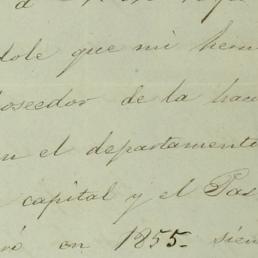 dole que mi herm
oseedor de la hac
n el departamento
capital y el Pas
ró en 1855. sien